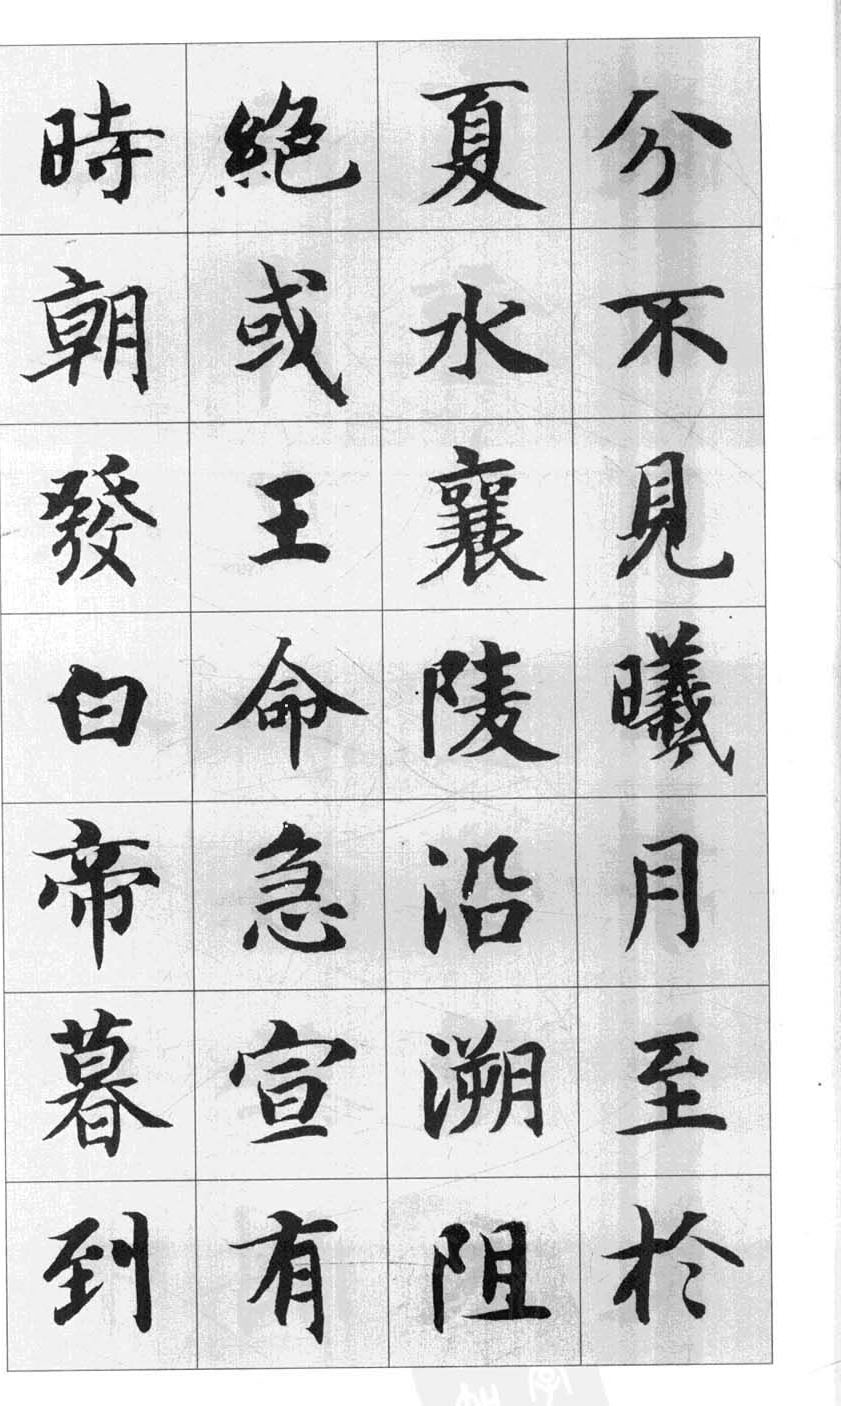 分不見曦月至於
夏水襄陵沿溯阻
絕或王命急宣有
時朝發白帝暮到